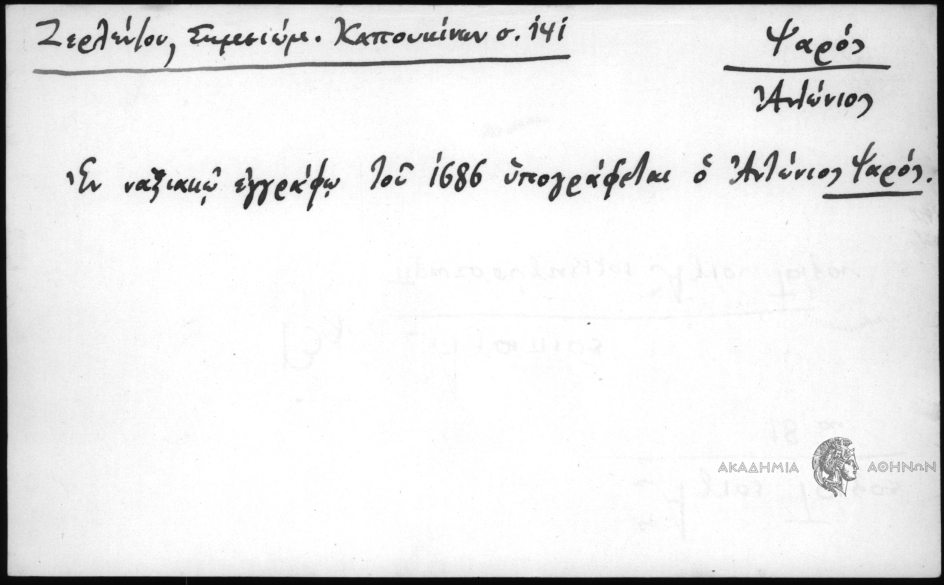 Ζερλέντου, Σημειώμ. Καπουκίνων σ. 141
Ψαρός
Ἀντώνιος
Ἐν ναξιακῷ ἐγγράφῳ τοῦ 1686 ὑπογράφεται ὁ Ἀντώνιος Ψαρός.
ΑΚΑΔΗΜΙΑ ΑΘΗΝΩΝ